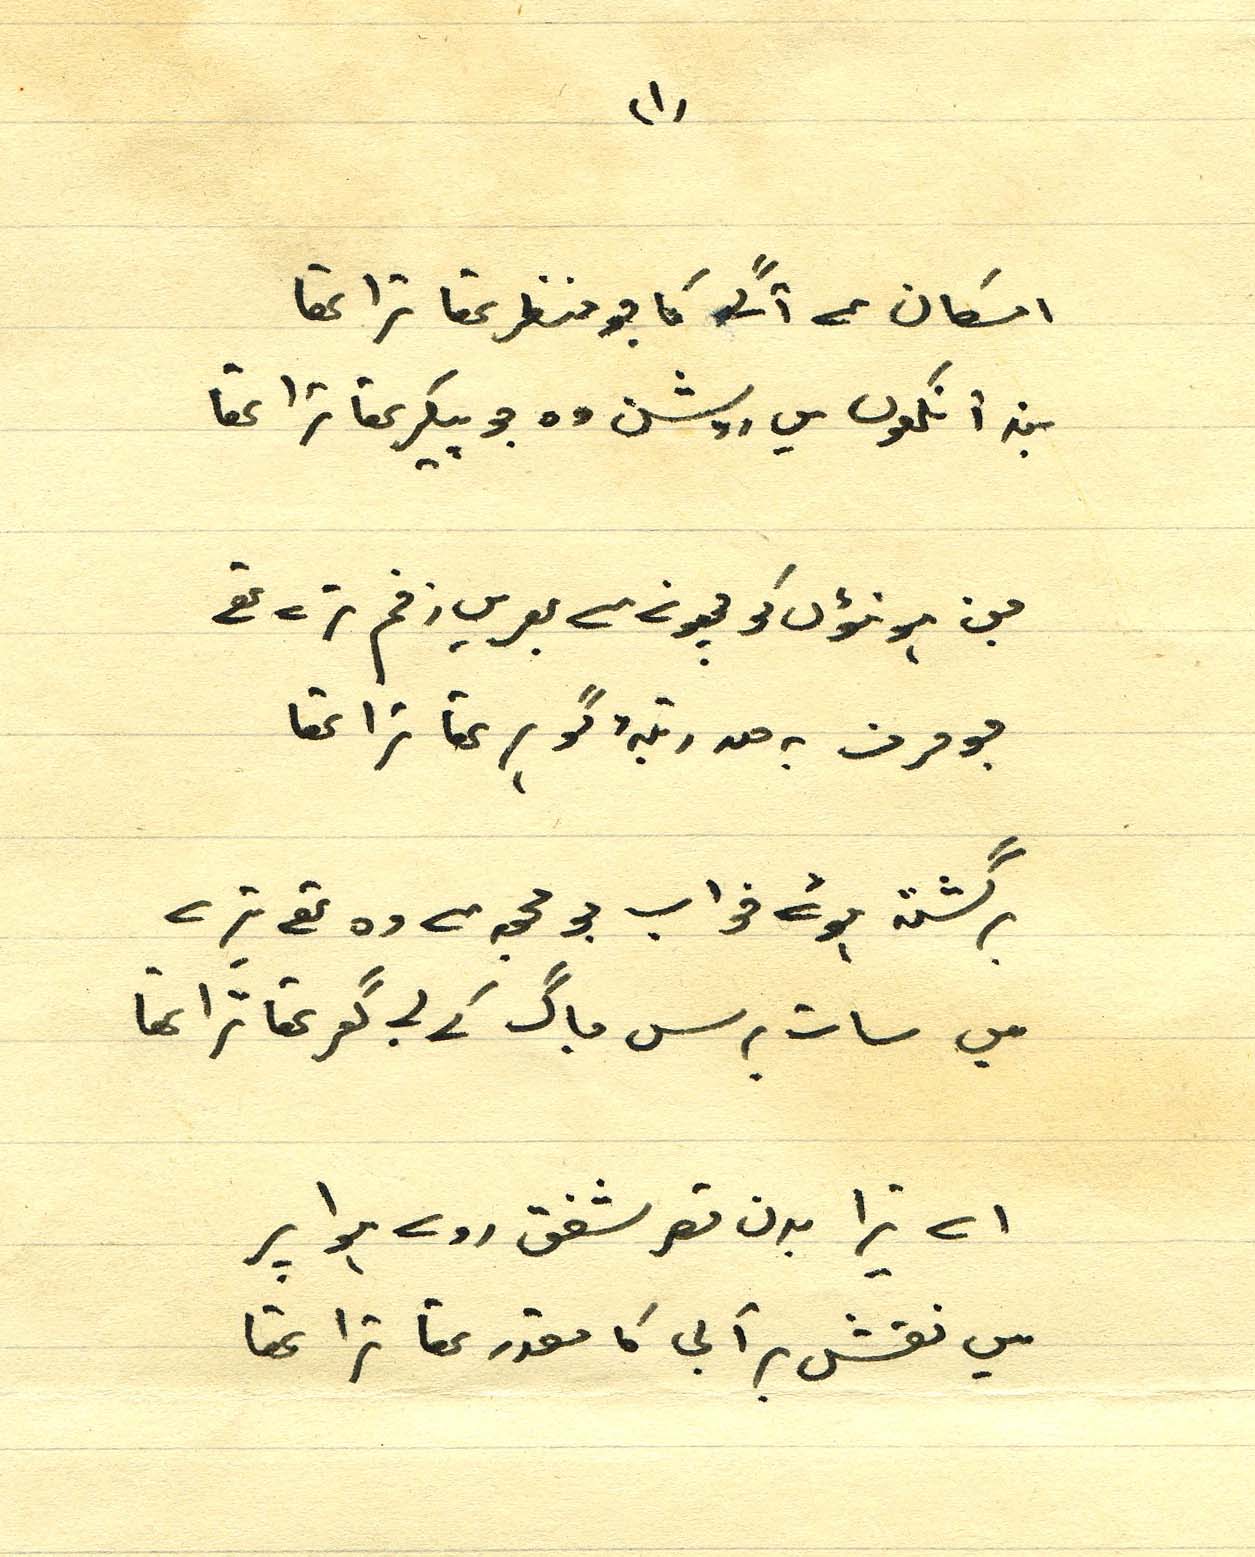 (۱)
امکان سے آگے کا جو منظر تھا ترا تھا
بند آنکھوں میں روشن وہ جو پیکر تھا ترا تھا
جن ہونٹوں کو چھونے سے بھریں زخم ترے تھے
جو حرف بہ صد رتبۂ گوہر تھا ترا تھا
برگشتہ ہوئے خواب جو مجھ سے وہ تھے تیرے
میں سات برس جاگ کے بے گھر تھا ترا تھا
اے تیرا بدن قصر شفق روئے ہوا پر
میں نقش بر آب کا مقدر تھا ترا تھا